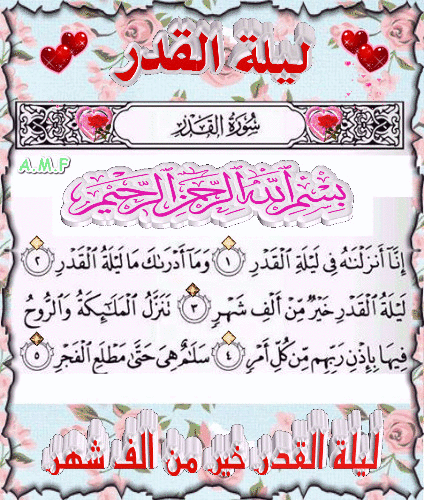 ليلة القدر
سُورَةُ القَدْرِ
A.M.P
بِسْمِ ٱللَّهِ ٱلرَّحْمَٰنِ ٱلرَّحِيمِ
إِنَّآ أَنزَلْنَٰهُ فِى لَيْلَةِ ٱلْقَدْرِ ١ وَمَآ أَدْرَىٰكَ مَا لَيْلَةُ ٱلْقَدْرِ ٢
لَيْلَةُ ٱلْقَدْرِ خَيْرٌ مِّنْ أَلْفِ شَهْرٍ ٣ تَنَزَّلُ ٱلْمَلَٰٓئِكَةُ وَٱلرُّوحُ
فِيهَا بِإِذْنِ رَبِّهِم مِّن كُلِّ أَمْرٍ ٤ سَلَٰمٌ هِىَ حَتَّىٰ مَطْلَعِ ٱلْفَجْرِ ٥
ليلة القدر خير من الف شهر